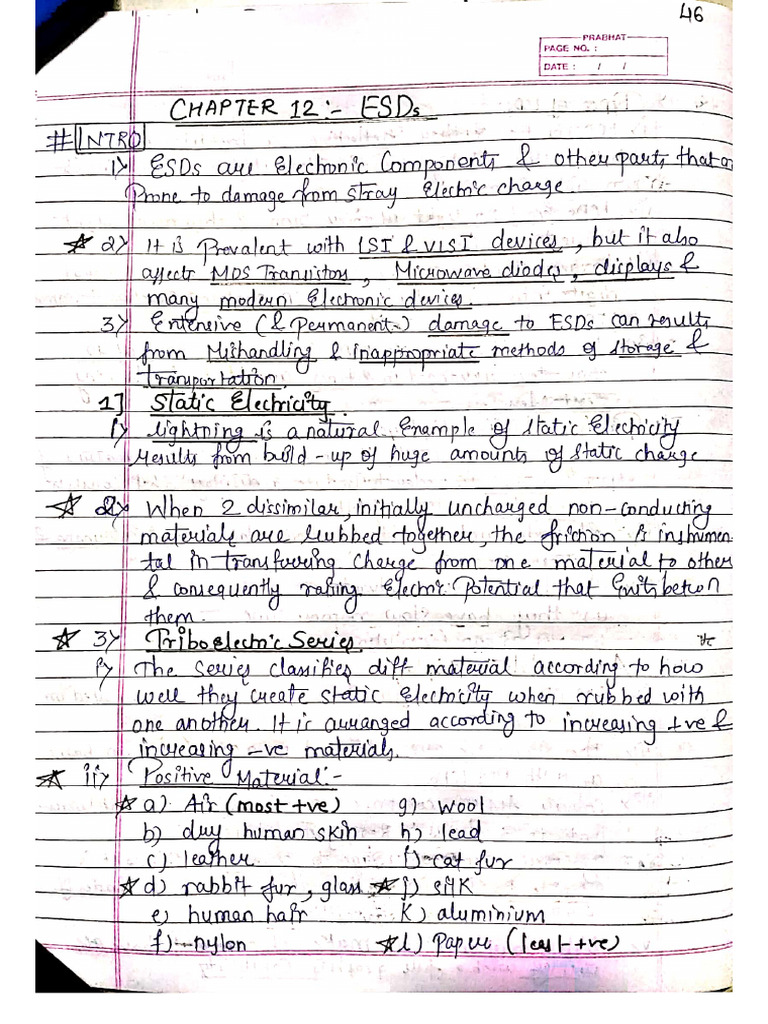 46
PRABHAT
PAGE NO. :
DATE : / /
CHAPTER 12 :- ESDs
# INTRO
1) ESDs are Electronic Components & other parts that a
Prone to damage from Stray Electric charge
2) It is Prevalent with LSI & VLSI devices, but it also
affects MOS Transistors, Microwave diodes, displays &
many modern Electronic devices.
3) Extensive (& Permanent) damage to ESDs can results
from Mishandling & inappropriate methods of storage &
transportation.
1] Static Electricity
1) lightning is a natural Example of Static Electricity
results from build-up of huge amounts of static charge
2) When 2 dissimilar, initially uncharged non-conducting
materials are rubbed together, the friction is instrumen
tal in transferring charge from one material to other
& consequently raising Electric Potential that Exits between
them.
3) Triboelectric Series
i) The series classifies diff material according to how
well they create static Electricity when rubbed with
one another. It is arranged according to increasing +ve &
increasing -ve materials.
ii) Positive Material :-
a) Air (most +ve) g) wool
b) dry human skin h) lead
c) leather i) cat fur
d) rabbit fur, glass j) silk
e) human hair k) aluminium
f) nylon l) Paper (least +ve)